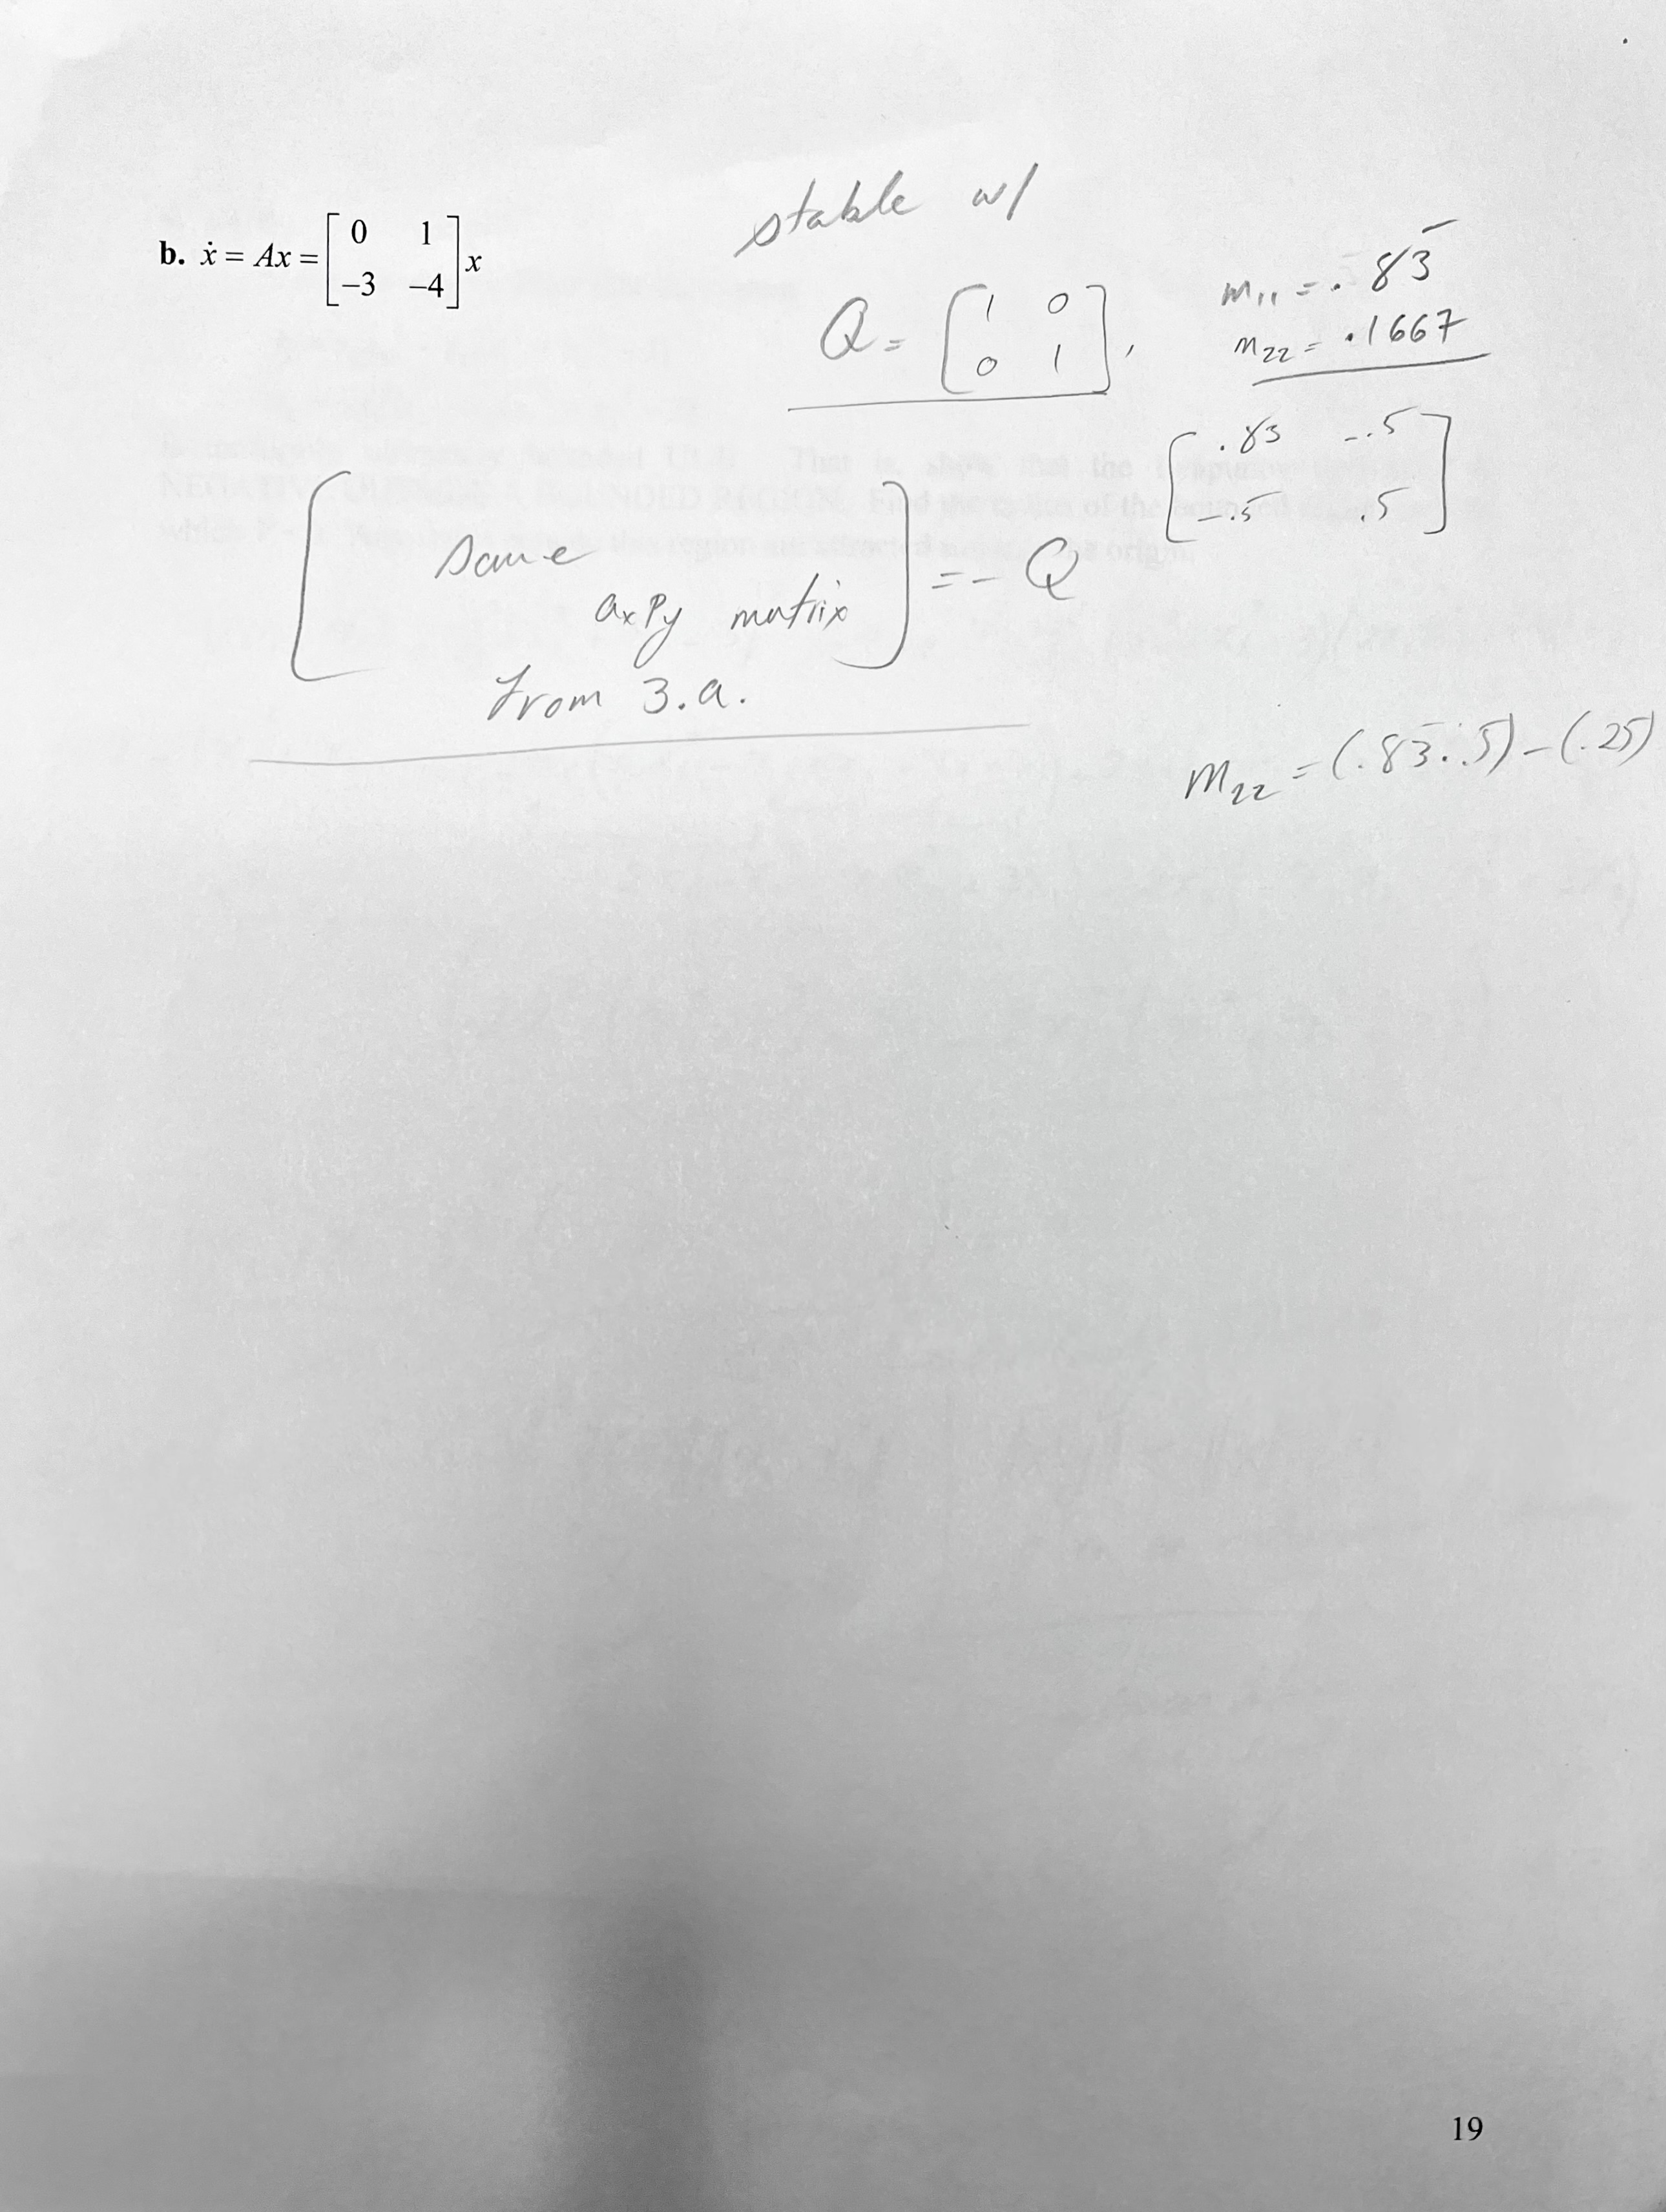 b. ẋ = Ax = [ 0 1 ; −3 −4 ] x
stable w/
Q = [ 1 0 ; 0 1 ],
m₁₁ = .83̄
m₂₂ = .1667
[ .83 -.5 ; -.5 .5 ]
[ same
axPy matrix ] = - Q
from 3.a.
m₂₂ = (.83̄ · .5) - (.25)
19